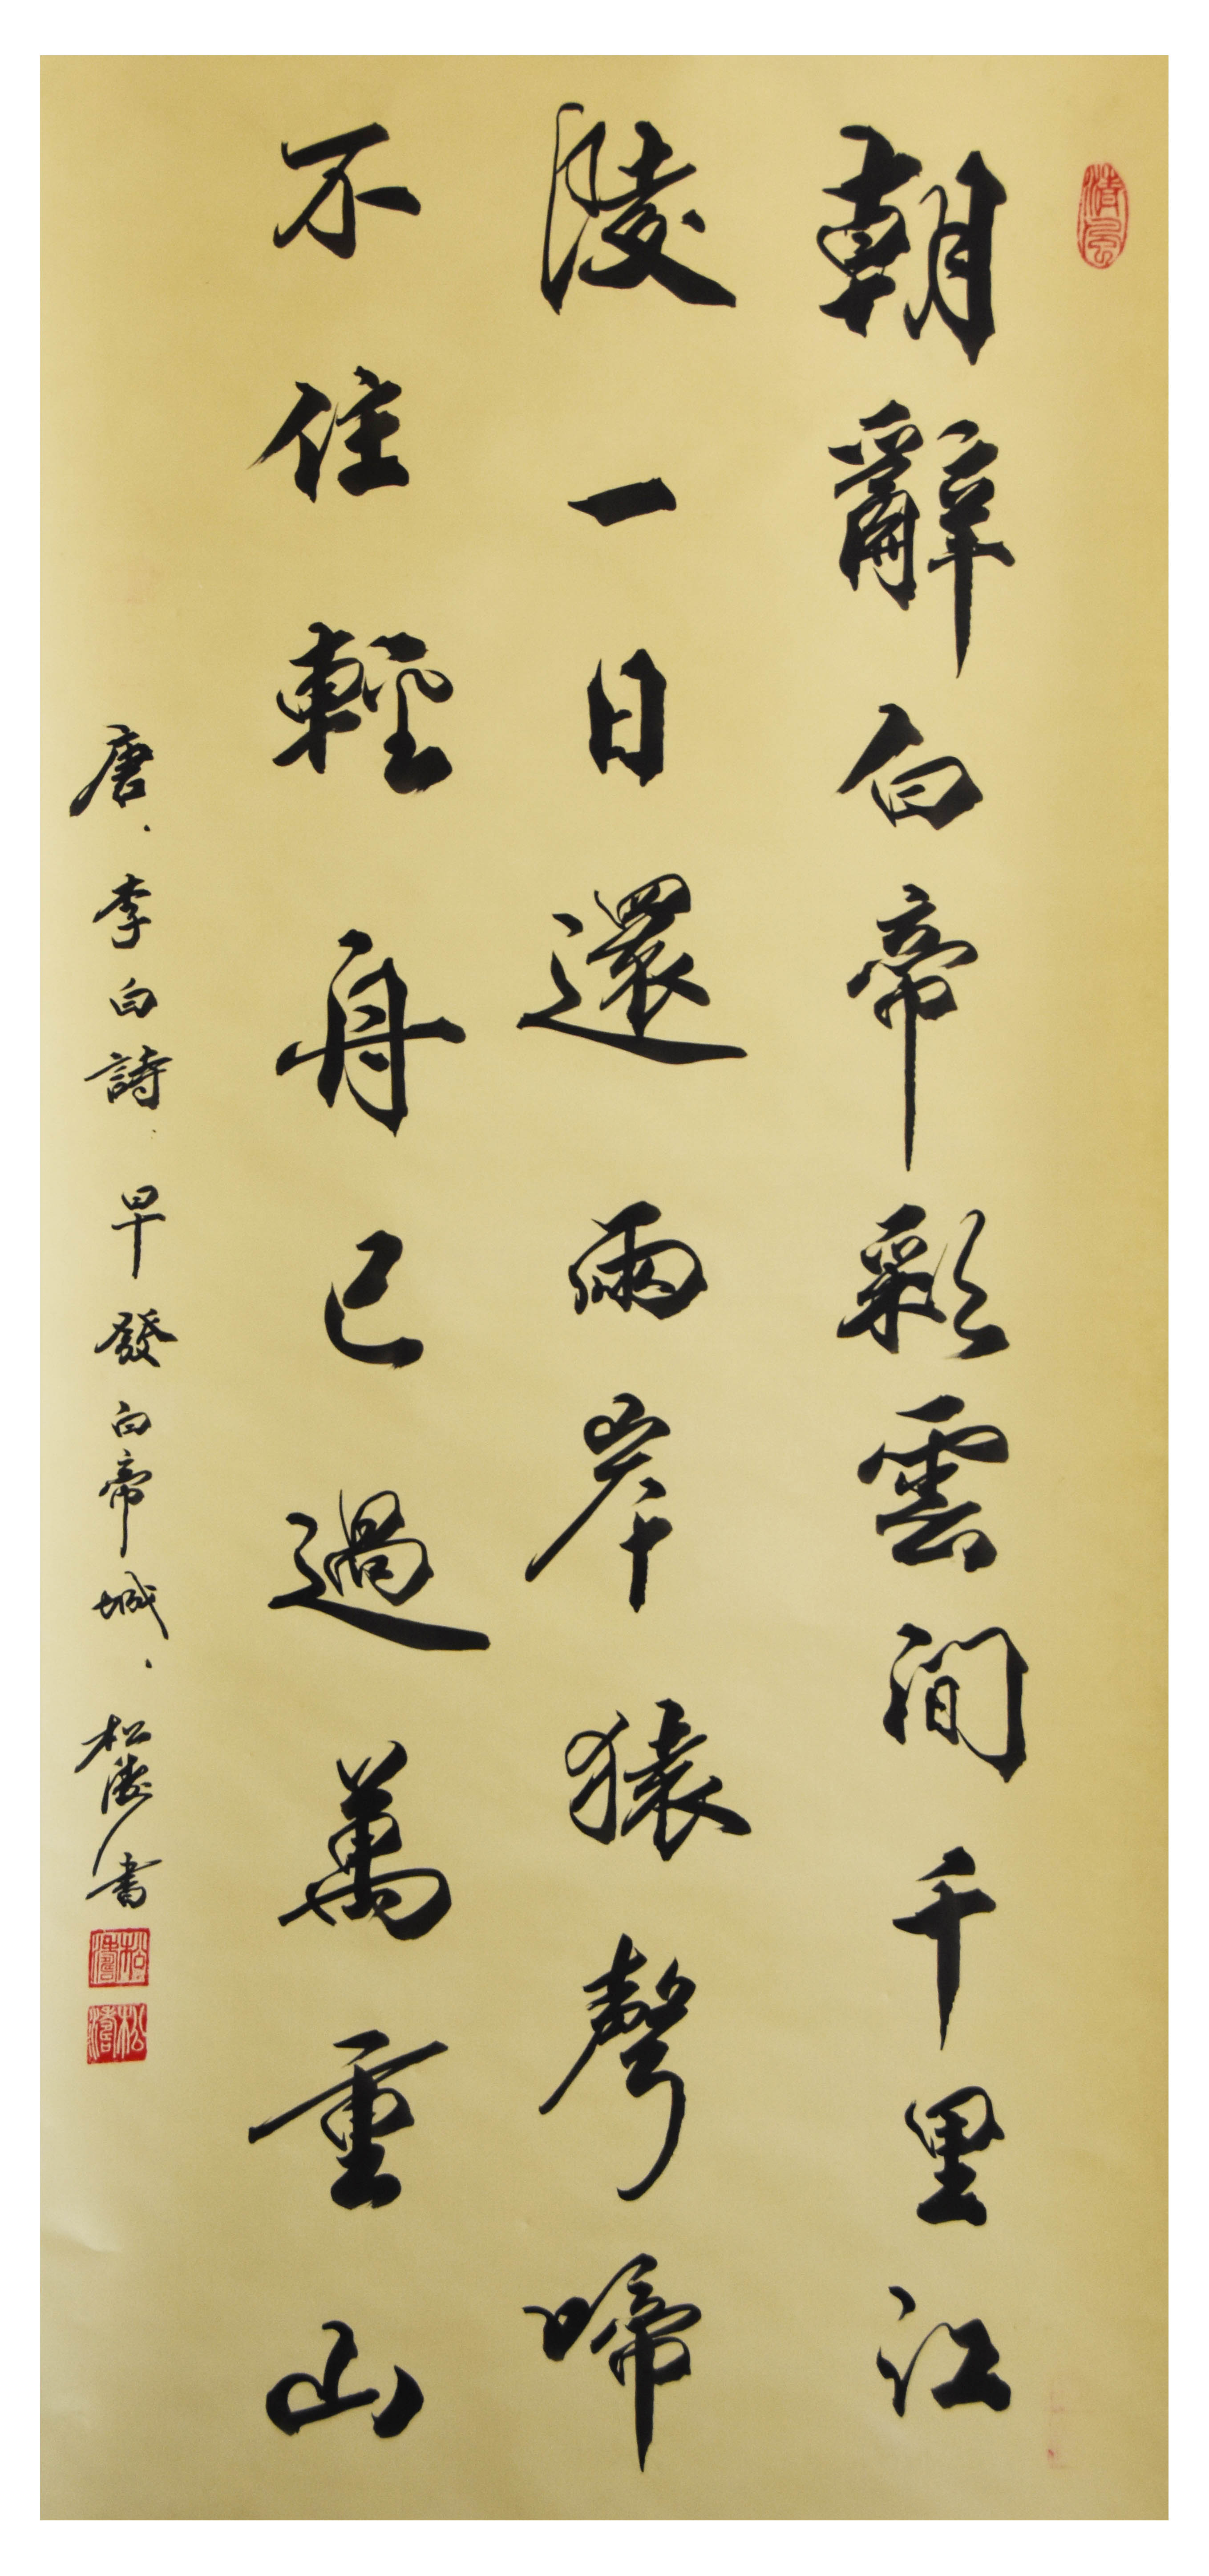 清風
朝辭白帝彩雲間千里江
陵一日還兩岸猿聲啼
不住輕舟已過萬重山
唐、李白詩、早發白帝城、松濤書
松濤
松濤